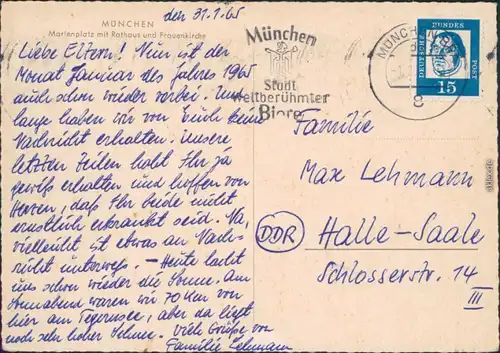 den 31.1.65
MÜNCHEN
Marienplatz mit Rathaus und Frauenkirche
Liebe Eltern! Nun ist der
Monat Januar des Jahres 1965
auch schon wieder vorbei. Und
lange haben wir von Euch keine
Nachricht erhalten. Unsere
letzten Zeilen habt Ihr ja
gewiß erhalten und hoffen von
Herzen, daß Ihr beide nicht
ernstlich erkrankt seid. Na,
vielleicht ist etwas an Nach-
richt unterwegs. - Heute lacht
uns schon wieder die Sonne. Am
Sonnabend waren wir 70 km von
hier am Tegernsee, aber da liegt
noch sehr hoher Schnee. Viele Grüße von
Familie Lehmann
München
Stadt
weltberühmter
Biere
MÜNCHEN
8
DEUTSCHE BUNDESPOST
15
Familie
Max Lehmann
DDR Halle-Saale
Schlosserstr. 14
III